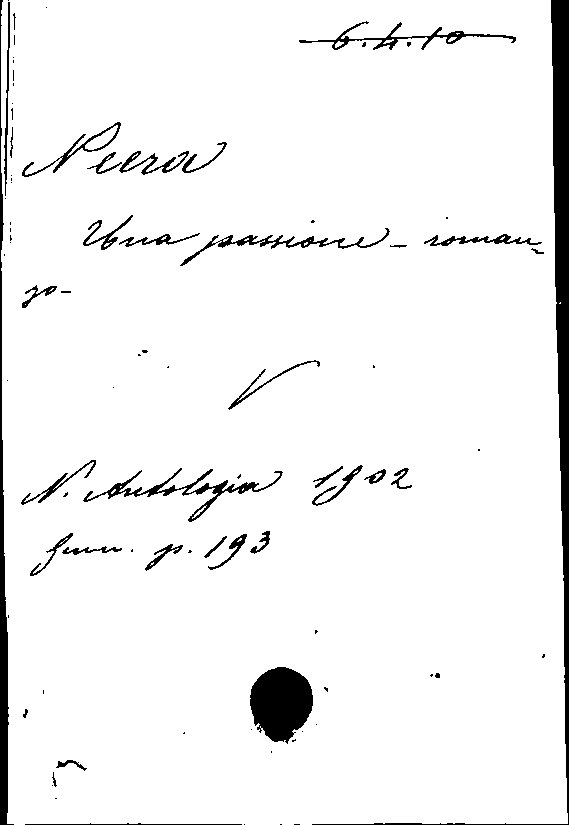 6.4.10
Neera
Una passione - roman-
zo-
V
N. Antologia 1902
Genn. p. 193